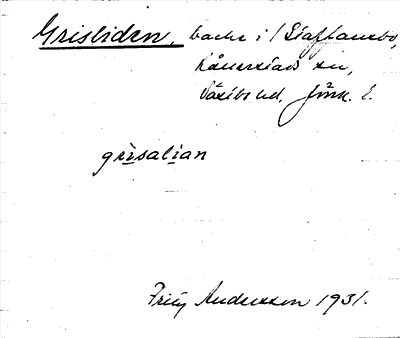 Grisliden, backe i Staffansbo,
Kåxerstads sn,
Västbo hd, Jönk. l.
grisalian
Fritz Andersson 1931.